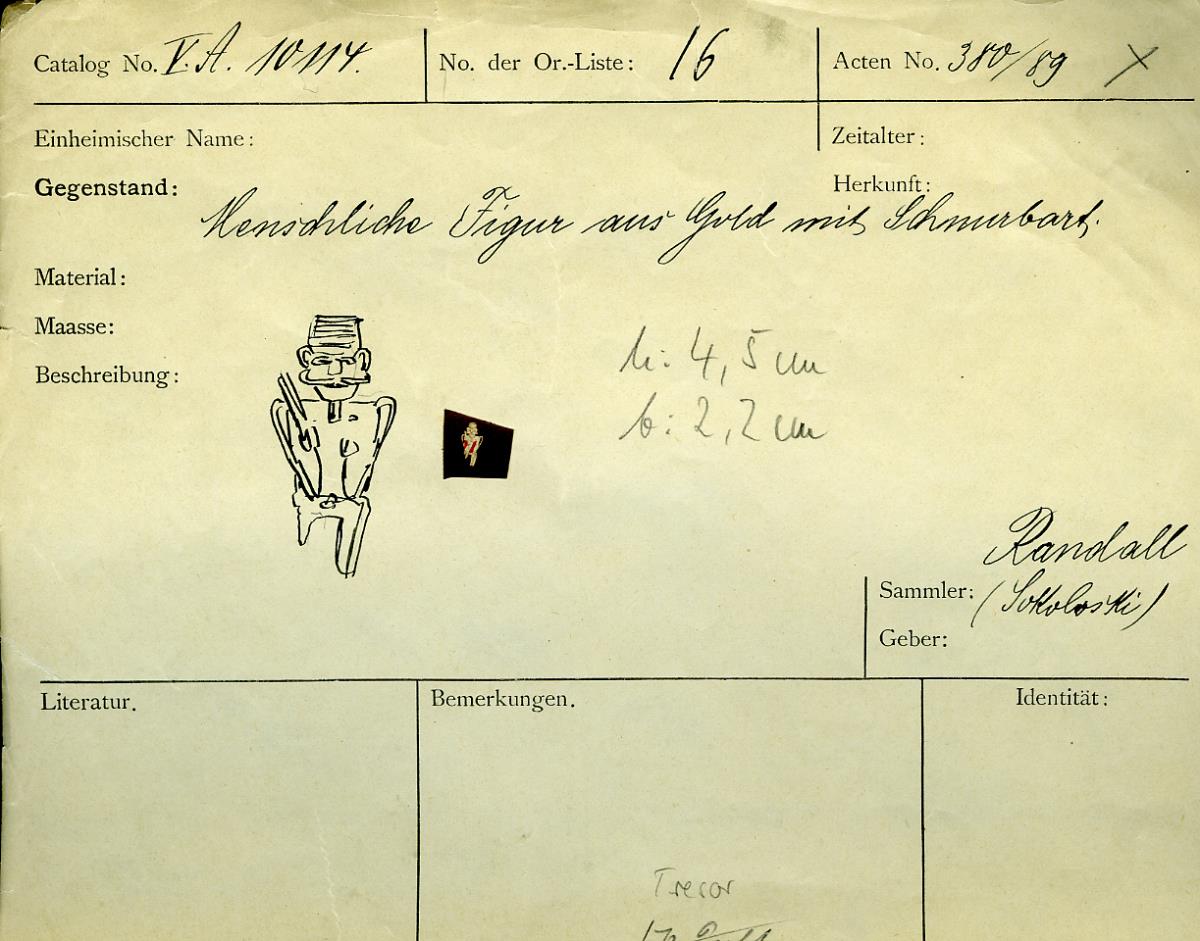 Catalog No. V.A. 10114. No. der Or.-Liste: 16 Acten No. 380/89 X
Einheimischer Name: Zeitalter:
Gegenstand: Herkunft:
Menschliche Figur aus Gold mit Schnurbart.
Material:
Maasse:
h: 4,5 cm
Beschreibung:
b: 2,2 cm
Randall
Sammler: (Sokoloski)
Geber:
Literatur. Bemerkungen. Identität:
Tresor